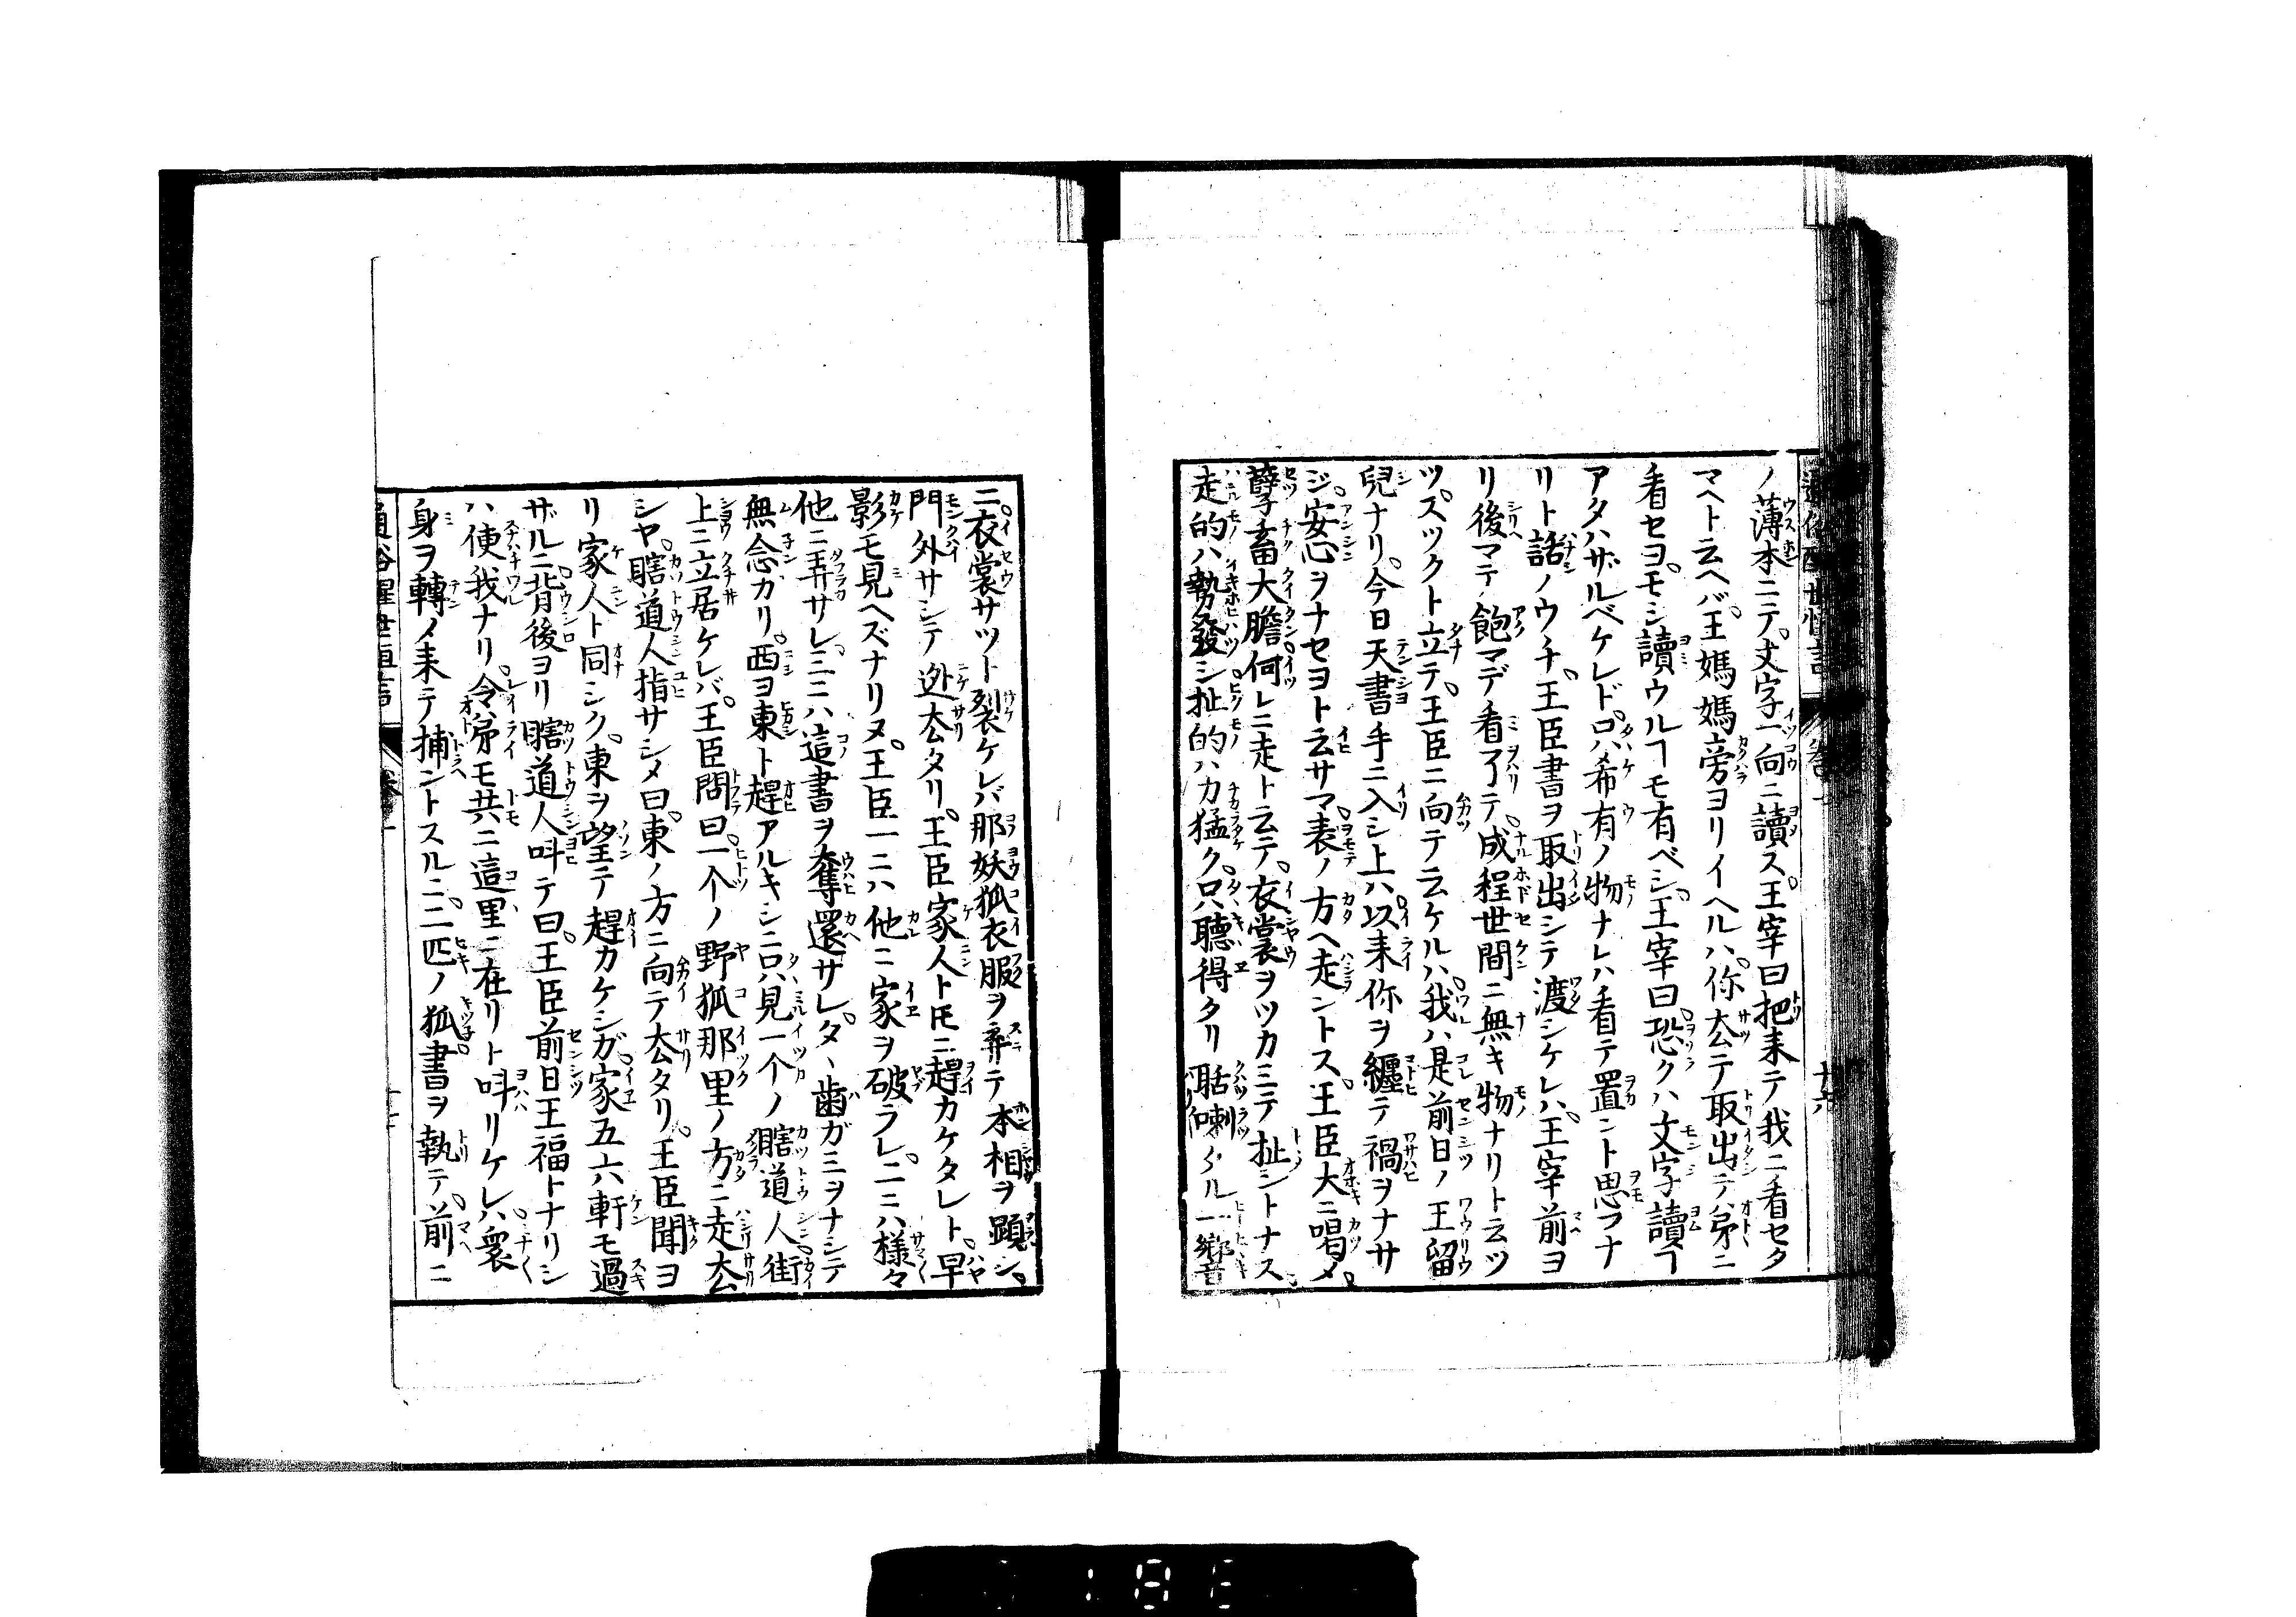 ノ薄本ニテ文字一向ニ讀ス王宰曰把来テ我ニ看セタ
マヘト云ヘバ王媽媽旁ヨリイヘルハ你厺テ取出テ弟ニ
看セヨモシ讀ウルヿモ有ベシ王宰曰恐クハ文字讀ヿ
アタハザルベケレド只希有ノ物ナレハ看テ置ント思フナ
リト話ノウチ王臣書ヲ取出シテ渡シケレハ王宰前ヨ
リ後マテ飽マデ看了テ成程世間ニ無キ物ナリト云ツ
ツズツクト立テ王臣ニ向テ云ケルハ我ハ是前日ノ王留
兒ナリ今日天書手ニ入シ上ハ以来你ヲ纏テ禍ヲナサ
ジ安心ヲナセヨト云サマ表ノ方ヘ走ントス王臣大ニ喝メ
孽畜大膽何レニ走ト云テ衣裳ヲツカミテ扯シトナス
走的ハ勢發シ扯的ハ力猛ク只聴得タリ聒喇タル一響音
ニ衣裳サツト裂ケレバ那妖狐衣服ヲ弃テ本相ヲ顕シ
門外サシテ迯厺タリ王臣家人トモニ趕カケタレト早
影モ見ヘズナリヌ王臣一ニハ他ニ家ヲ破ラレ二ニハ様々
他ニ弄サレ三ニハ這書ヲ奪還サレタヽ歯ガミヲナシテ
無念カリ西ヨ東ト趕アルキシニ只見一个ノ瞎道人街
上ニ立居ケレバ王臣問曰一个ノ野狐那里ノ方ニ走厺
シヤ瞎道人指サシメ曰東ノ方ニ向テ厺タリ王臣聞ヨ
リ家人ト同シク東ヲ望テ趕カケシガ家五六軒モ過
ザルニ背後ヨリ瞎道人呌テ曰王臣前日王福トナリシ
ハ使我ナリ令弟モ共ニ這里ニ在リト呌リケレハ衆
身ヲ轉メ来テ捕ントスルニ二匹ノ狐書ヲ執テ前ニ